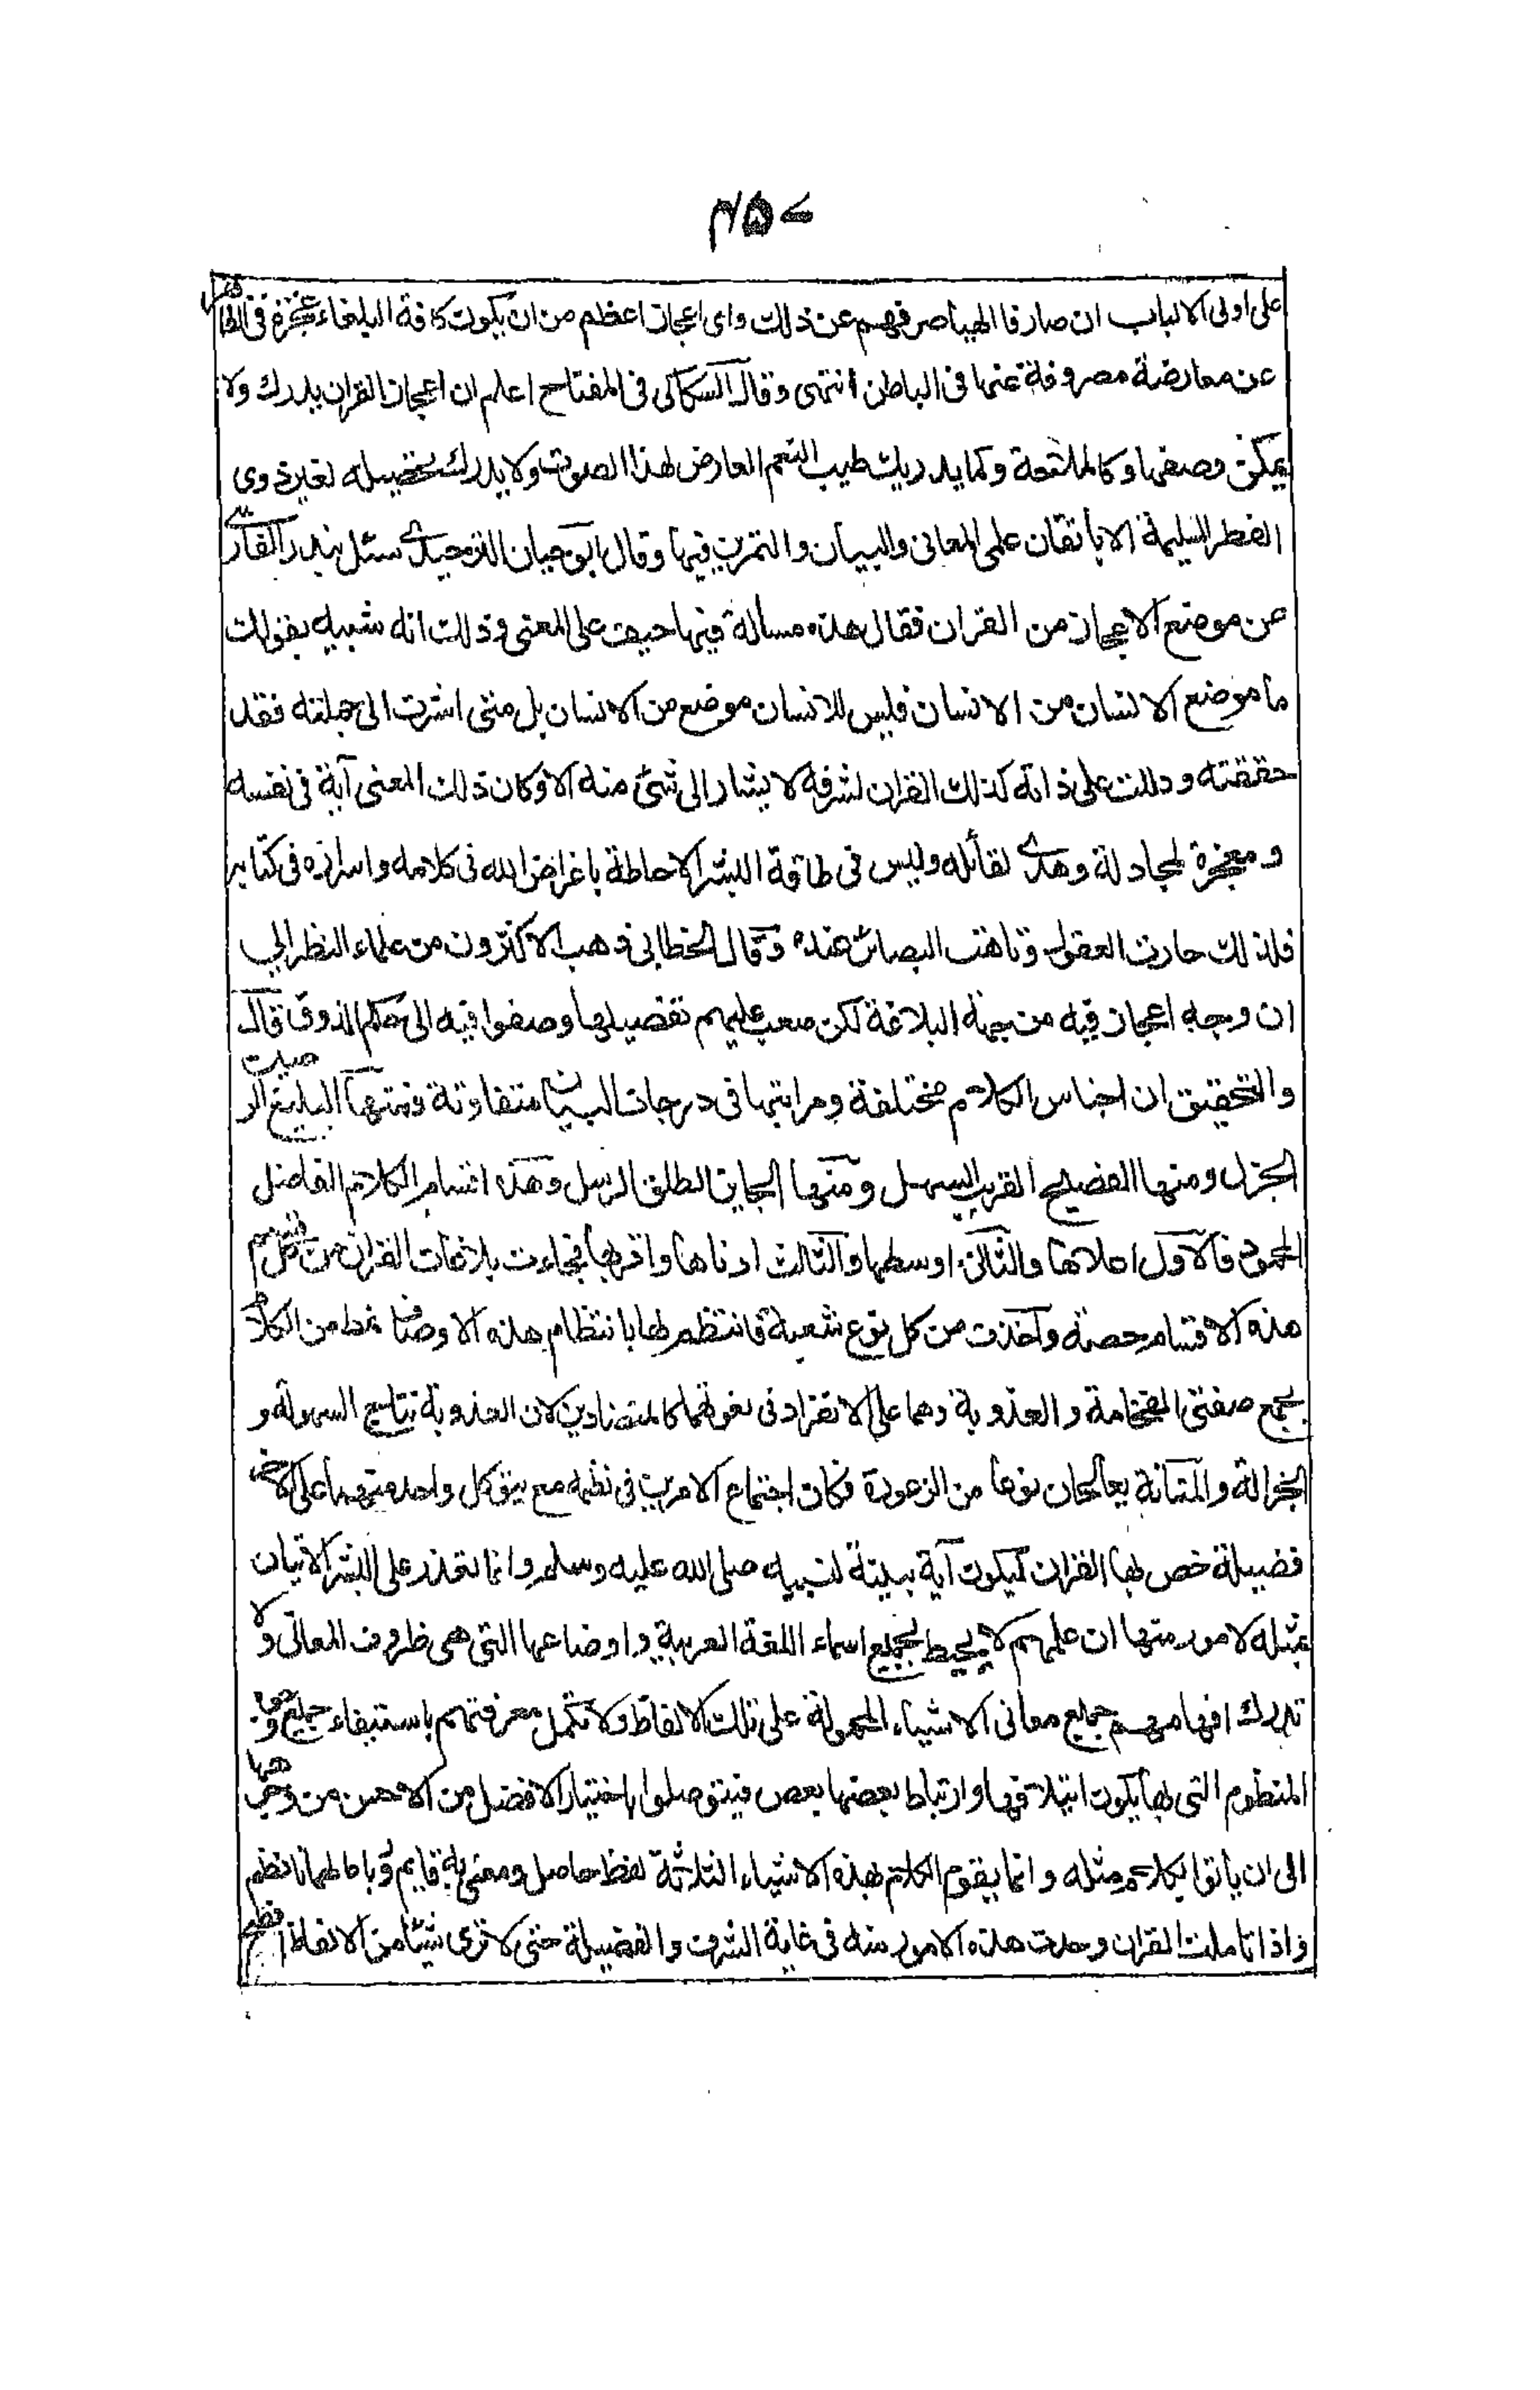 ۴۵۷
على اولى الالباب ان صارفا الهيا صرفهم عن ذلك واى اعجاز اعظم من ان يكون كافة البلغاء عجزة فى الظاهر
عن معارضة مصروفة عنها فى الباطن انتهى وقال السكاكى فى المفتاح اعلم ان اعجاز القران يدرك ولا
يمكن وصفها وكالملاحة وكما يدرك طيب النغم العارض لهذا الصوت ولا يدرك تحصيله لغير ذوى
الفطر السليمة الا باتقان علمى المعانى والبيان والتمرين فيها وقال ابو حيان التوحيدى سئل بندر الفارسى
عن موضع الاعجاز من القران فقال هذه مسألة فيها حيف على المعنى وذلك انه شبيه بقولك
ما موضع الانسان من الانسان فليس للانسان موضع من الانسان بل متى اشرت الى جملته فقد
حققته ودللت على ذاته كذلك القران لشرفه لا يشار الى شئ منه الا وكان ذلك المعنى آية فى نفسه
ومعجزة لمجادلة وهدى لقائله وليس فى طاقة البشر الاحاطة باغراض الله فى كلامه واسراره فى كتابه
فلذلك حارت العقول وتاهت البصائر عنده وقال الخطابى ذهب الاكثرون من علماء النظر الى
ان وجه اعجاز فيه من جهة البلاغة لكن صعب عليهم تفصيلها وصفوا فيه الى حكم الذوق قال
والتحقيق ان اجناس الكلام مختلفة ومراتبها فى درجات البيان متفاوتة فمنها البليغ الرصين
الجزل ومنها الفصيح القريب السهل ومنها الجايز الطلق الرسل وهذه اقسام الكلام الفاضل
المحمود فالاول اعلاها والثانى اوسطها والثالث ادناها واقربها فجاءت بلاغات القران من كل قسم
هذه الاقسام حصة وآخذت من كل نوع شعبة فانتظم لها بانتظام هذه الاوصاف نمط من الكلام
يجمع صفتى الفخامة والعذوبة وهما على الانفراد فى نعوتهما كالمتضادين لان العذوبة نتايج السهولة و
الجزالة والمتانة يعالجان نوعا من الزعورة فكان اجتماع الامرين فى نظمه مع نبو كل واحد منهما على الاخر
فضيلة خص بها القران ليكون آية بينة لنبيه صلى الله عليه وسلم وانما تعذر على البشر الاتيان
بمثله لامور منها ان علمهم لا يحيط بجميع اسماء اللغة العربية واوضاعها التى هى ظروف المعانى ولا
تدرك افهامهم جميع معانى الاشياء المحمولة على تلك الالفاظ ولا تكمل معرفتهم باستيفاء جميع وجوه
المنظوم التى بها يكون ايتلافها وارتباط بعضها ببعض فيتوصلوا باختيار الافضل من الاحسن من وجوهها
الى ان ياتوا بكلام مثله وانما يقوم الكلام بهذه الاشياء الثلاثة لفظ حاصل ومعنى به قايم ورباط لهما ناظم
واذا تاملت القران وجدت هذه الامور منه فى غاية الشرف والفضيلة حتى لا ترى شيئا من الالفاظ افصح